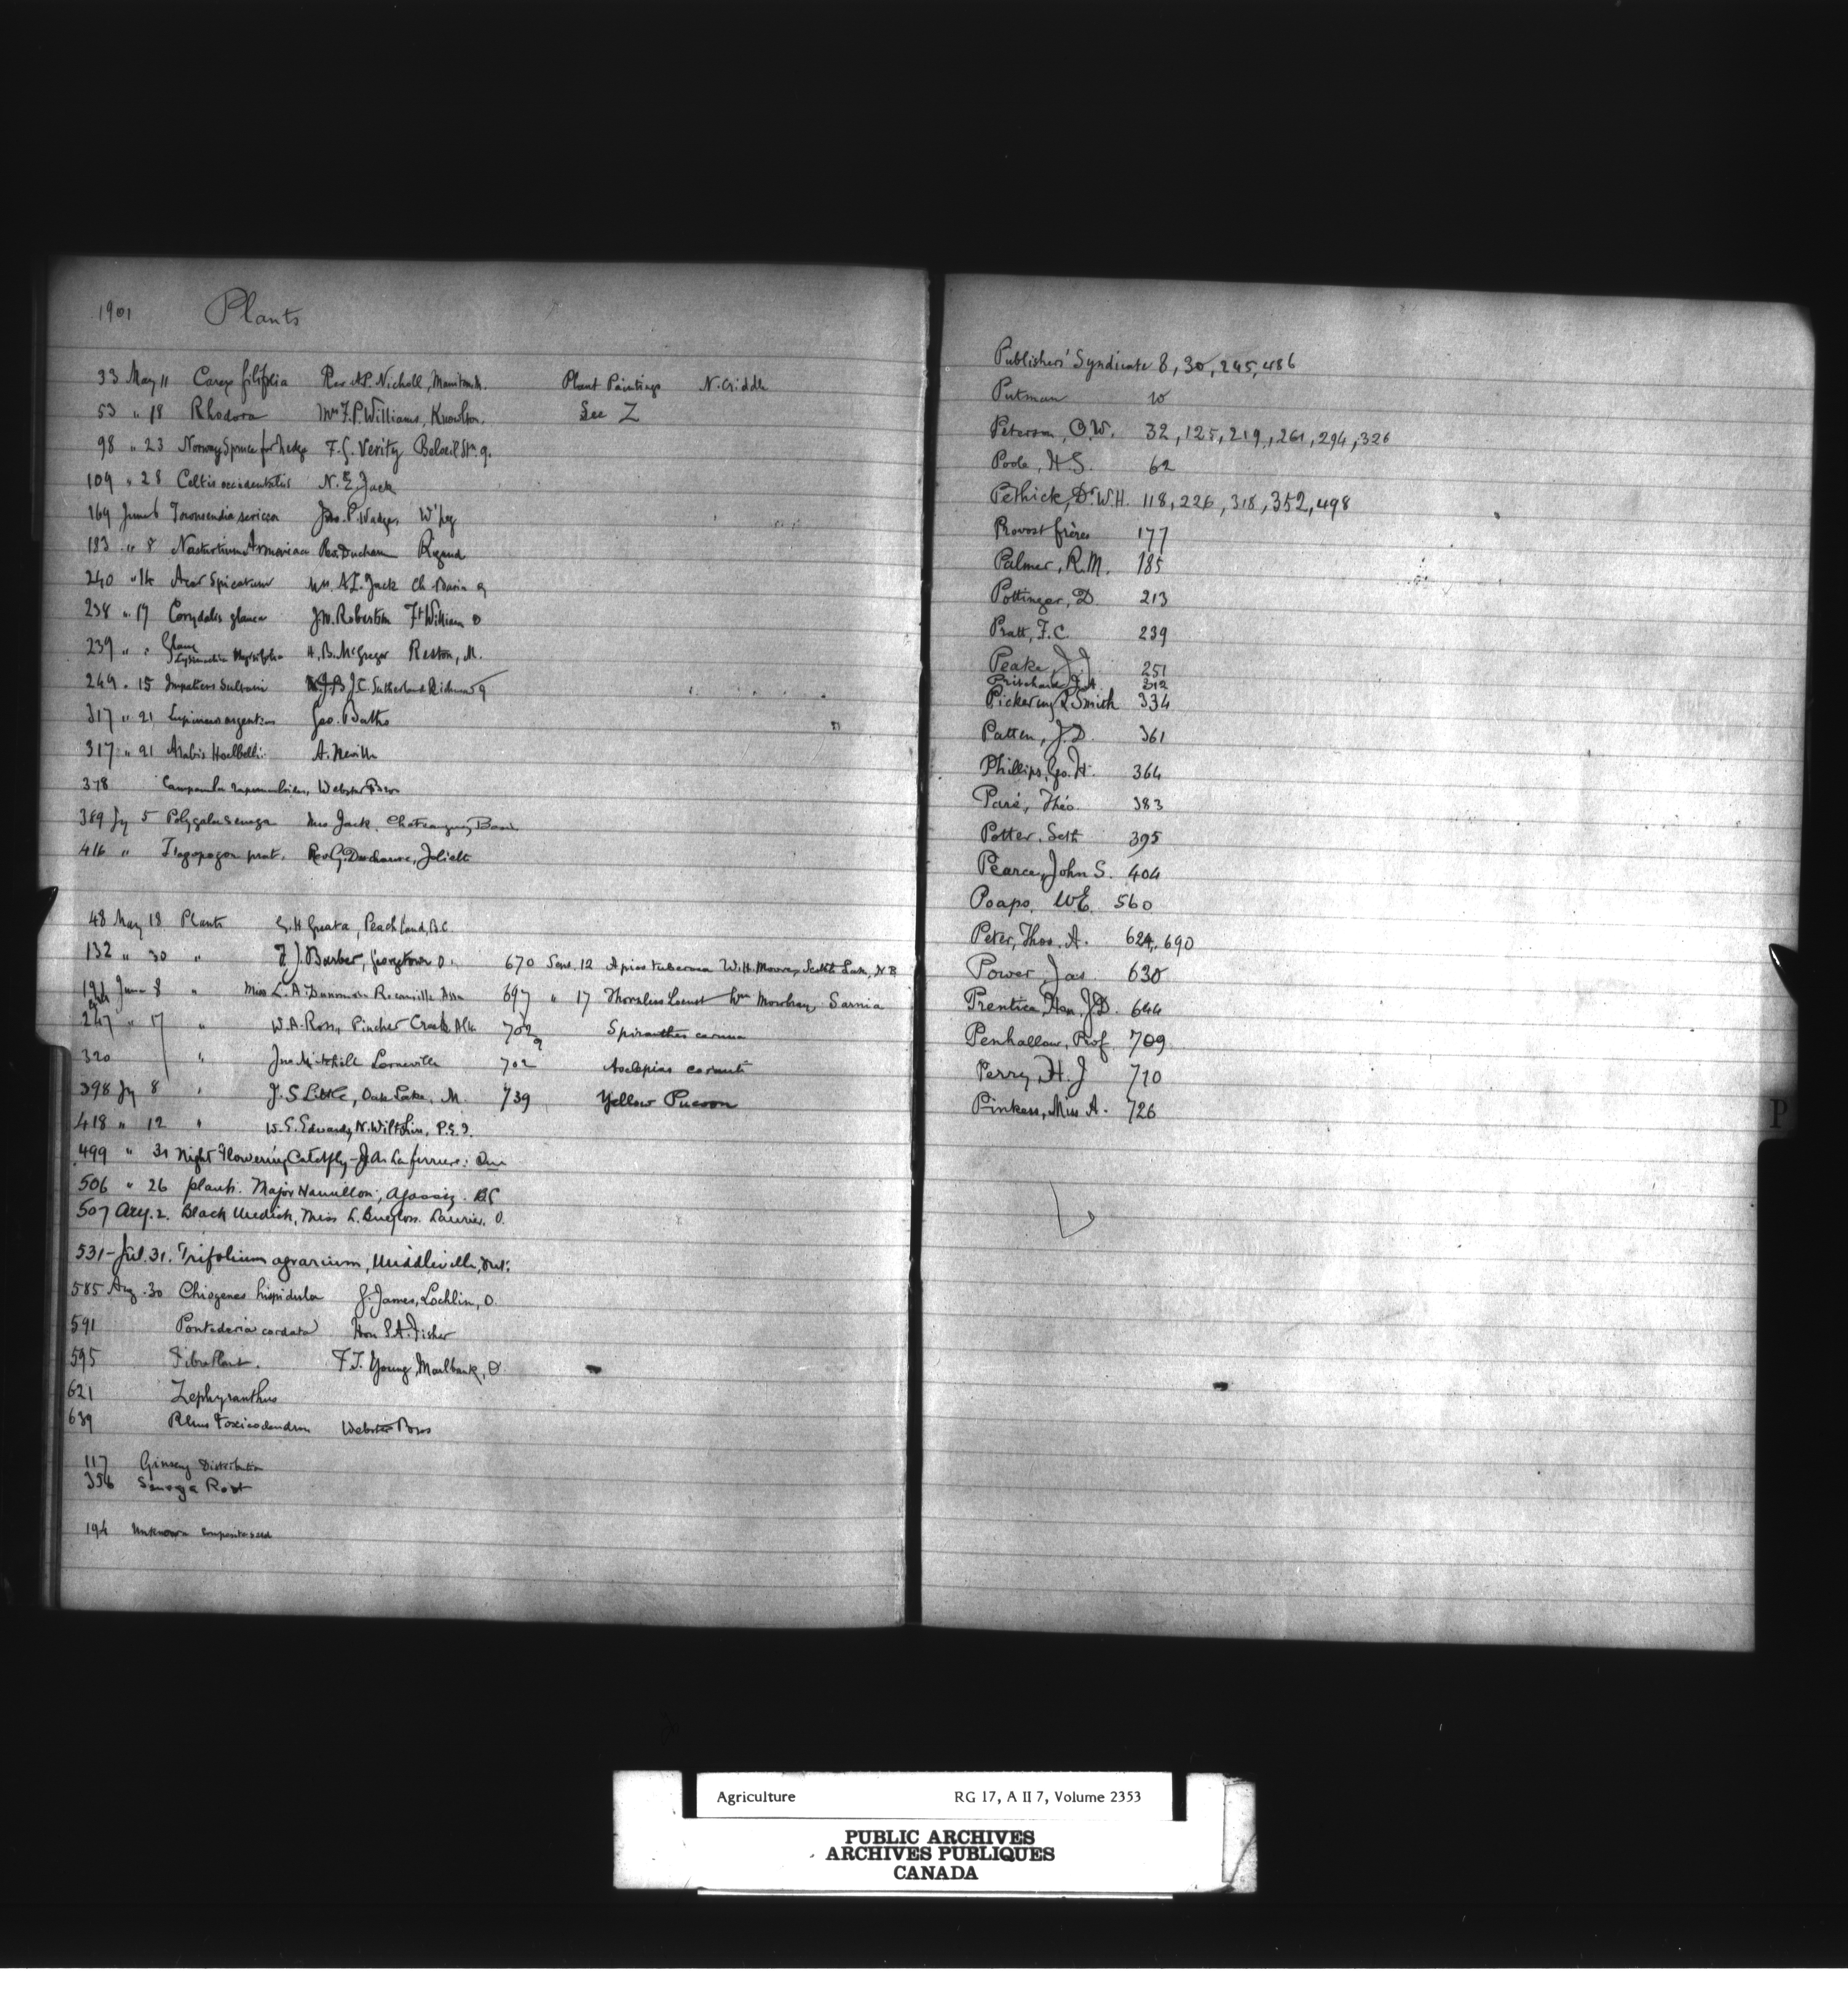 1901 Plants
33 May 11 Carex filifolia Rev A.P. Nicholl, Manitou M. Plant Paintings N. Criddle
53 " 18 Rhodora Mrs F.P. Williams, Knowlton. See Z
98 " 23 Norway Spruce for hedge F.G. Verity Beloeil Stn q.
109 " 28 Celtis occidentalis N. E. Jack
169 June 6 Townsendia sericea Jno. P. Wadge, W'peg
183 " 8 Nasturtium Armoriaca Rev. Rigaud
240 " 14 Acer Spicatum Mrs. A.L. Jack Ch. Basin q
238 " 17 Corydalis glauca J.W. Robertson Ft William O
239 " " Glaux H. B. McGregor Reston, M.
249 " 15 Impatiens Sultani J.C. Sutherland Richmond q
317 " 21 Lupinus argenteus Geo. Batho
317 " 21 Arabis A. Neville
378 Campanula rapunculoides, Webster Bros
389 Jy 5 Polygala Senega Mrs Jack, Chateauguay Basin
416 " Tragopogon prat. Rev G. Joliette
48 May 18 Plants G. H Greata, Peachland, B.C.
132 " 30 " F J. Barber, Georgetown O. 670 Sept. 12 Apios tuberosa W.H. N.B.
191 June 8 " Miss L. A. Assa 697 " 17 Thornless Locust Wm Mowbray, Sarnia
247 " 17 " W.A. Ross, Pincher Creek, Alta 702 9 Spiranthes cernua
320 " Jno Mitchell Lorneville 702 Asclepias cornuti
398 Jy 8 " J. S Little, Oak Lake, M. 739 Yellow Pucoon
418 " 12 " W. S. Edwards, N. Wiltshire, P.E.I.
499 " 31 Night Flowering Catchfly - J.A. Laferriere:
506 " 26 plants. Major Hamilton, Agassiz. BC
507 Aug. 2. Black Medick, Miss L. Laurier. O.
531 - Jul. 31. Trifolium agrarium, Middleville, Ont.
585 Aug. 30 Chiogenes hispidula J. James, Lochlin, O.
591 Pontederia cordata Hon S.A. Fisher
595 Fibre Plant. F.T. Young, Marlbank, O.
621 Zephyranthus
639 Rhus toxicodendron Webster Bros
117 Ginseng Distribution
356 Senega Root
194 Unknown composite seed
Publishers' Syndicate 8, 30, 245, 486
Putman 10
Peterson, O.W. 32, 125, 219, 261, 294, 326
Poole, H.S. 62
Pethick, Dr W.H. 118, 226, 318, 352, 498
Provost frères 177
Palmer, R.M. 185
Pottinger, D. 213
Pratt, F.C. 239
Peake, J.J. 251
Pritchard J.A. 312
Pickering & Smith 334
Patten, J.D. 361
Phillips, Geo. H. 364
Paré, Théo. 383
Potter, Seth 395
Pearce, John S. 404
Poapo, W.E. 560
Peter, Thos. A. 624, 690
Power, Jas. 630
Prentice, Hon. J.D. 644
Penhallow, Prof. 709
Perry, H. J 710
Pinkess, Miss A. 726
P
Agriculture RG 17, A II 7, Volume 2353
PUBLIC ARCHIVES
ARCHIVES PUBLIQUES
CANADA